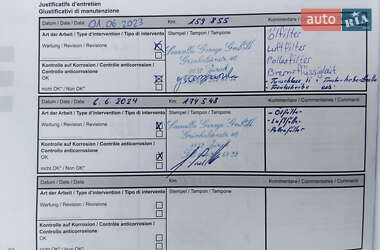 Justificatifs d'entretien
Giustificativi di manutenzione
AUTO RIA .com
Datum / Date / Data: 01.06.2023 Km: 159 855 Kommentare / Commentaires / Commenti
Art der Arbeit / Type d'intervention / Tipo di intervento Stempel / Tampon / Tampone Ölfilter
Wartung / Revision / Revisione Luftfilter
Pollenfilter
Kontrolle auf Korrosion / Contrôle anticorrosion / Controllo anticorrosione Bremsflüssigkeit
OK
nicht OK* / Non OK*
Datum / Date / Data: 6.6.2024 Km: 174 548 Kommentare / Commentaires / Commenti
Art der Arbeit / Type d'intervention / Tipo di intervento Stempel / Tampon / Tampone - Ölfilter
Wartung / Revision / Revisione - Luftfilter
- Pollenfilter
Kontrolle auf Korrosion / Contrôle anticorrosion / Controllo anticorrosione
OK
nicht OK* / Non OK*
Datum / Date / Data: Km: Kommentare / Commentaires / Commenti
Art der Arbeit / Type d'intervention / Tipo di intervento Stempel / Tampon / Tampone
Wartung / Revision / Revisione
Kontrolle auf Korrosion / Contrôle anticorrosion / Controllo anticorrosione
OK
nicht OK* / Non OK*
Datum / Date / Data: Km: Kommentare / Commentaires / Commenti